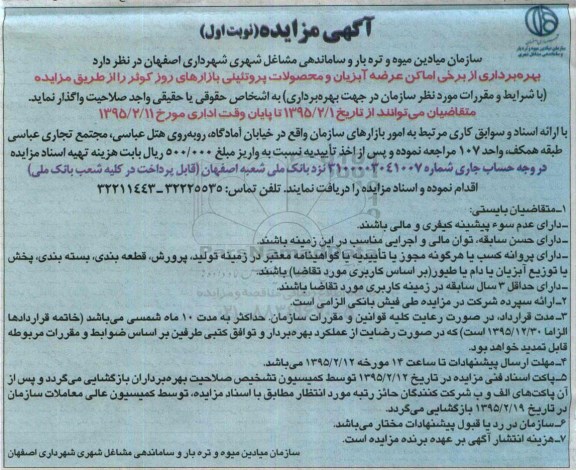 آگهی مزایده (نوبت اول)
سازمان میادین میوه و تره بار و ساماندهی مشاغل شهری شهرداری اصفهان در نظر دارد
بهره‌برداری از برخی اماکن عرضه آبزیان و محصولات پروتئینی بازارهای روز کوثر را از طریق مزایده
(با شرایط و مقررات مورد نظر سازمان در جهت بهره‌برداری) به اشخاص حقوقی یا حقیقی واجد صلاحیت واگذار نماید.
متقاضیان می‌توانند از تاریخ ۱۳۹۵/۲/۱ تا پایان وقت اداری مورخ ۱۳۹۵/۲/۱۱
با ارائه اسناد و سوابق کاری مرتبط به امور بازارهای سازمان واقع در خیابان آمادگاه، روبه‌روی هتل عباسی، مجتمع تجاری عباسی
طبقه همکف، واحد ۱۰۷ مراجعه نموده و پس از اخذ تأییدیه نسبت به واریز مبلغ ۵۰۰/۰۰۰ ریال بابت هزینه تهیه اسناد مزایده
در وجه حساب جاری شماره ۳۱۰۰۰۰۳۰۴۱۰۰۷ نزد بانک ملی شعبه اصفهان (قابل پرداخت در کلیه شعب بانک ملی)
اقدام نموده و اسناد مزایده را دریافت نمایند. تلفن تماس: ۳۲۲۲۵۵۳۵-۳۲۲۱۱۴۴۳
۱-متقاضیان بایستی:
-دارای عدم سوء پیشینه کیفری و مالی باشند.
-دارای حسن سابقه، توان مالی و اجرایی مناسب در این زمینه باشند.
-دارای پروانه کسب یا هرگونه مجوز یا تأییدیه یا گواهینامه معتبر در زمینه تولید، پرورش، قطعه بندی، بسته بندی، پخش
یا توزیع آبزیان یا دام یا طیور (بر اساس کاربری مورد تقاضا) باشند.
-دارای حداقل ۳ سال سابقه در زمینه کاربری مورد تقاضا باشند.
۲-ارائه سپرده شرکت در مزایده طی فیش بانکی الزامی است.
۳-مدت قرارداد، در صورت رعایت کلیه قوانین و مقررات سازمان، حداکثر به مدت ۱۰ ماه شمسی می‌باشد (خاتمه قراردادها
الزاما ۱۳۹۵/۱۲/۳۰ است) که در صورت رضایت از عملکرد بهره‌بردار و توافق کتبی طرفین بر اساس ضوابط و مقررات مربوطه
قابل تمدید خواهد بود.
۴-مهلت ارسال پیشنهادات تا ساعت ۱۴ مورخه ۱۳۹۵/۲/۱۲ می‌باشد.
۵-پاکت اسناد فنی مزایده در تاریخ ۱۳۹۵/۲/۱۲ توسط کمیسیون تشخیص صلاحیت بهره‌برداران بازگشایی می‌گردد و پس از
آن پاکت‌های الف و ب شرکت کنندگان حائز رتبه مورد انتظار مطابق با اسناد مزایده، توسط کمیسیون عالی معاملات سازمان
در تاریخ ۱۳۹۵/۲/۱۹ بازگشایی می‌گردد.
۶-سازمان در رد یا قبول پیشنهادات مختار می‌باشد.
۷-هزینه انتشار آگهی بر عهده برنده مزایده است.
سازمان میادین میوه و تره بار و ساماندهی مشاغل شهری شهرداری اصفهان